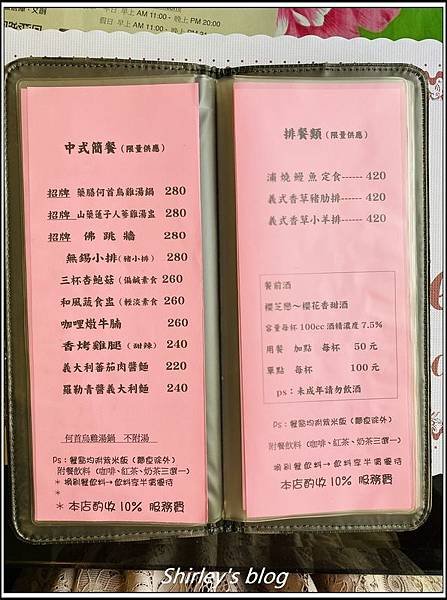 平日 早上 AM 11:00 - 晚上 PM 20:00
假日 早上 AM 11:00 - 晚上 PM
中式簡餐 (限量供應)
招牌 藥膳何首烏雞湯鍋 280
招牌 山藥蓮子人蔘雞湯盅 280
招牌 佛跳牆 280
無錫小排 (豬小排) 280
三杯杏鮑菇 (偏鹹素食 260
和風蔬食盅 (輕淡素食 260
咖哩燉牛腩 260
香烤雞腿 (甜辣) 240
義大利蕃茄肉醬麵 220
羅勒青醬義大利麵 240
何首烏雞湯鍋 不附湯
ps：餐點均附紫米飯 (麵食除外)
附餐飲料 (咖啡、紅茶、奶茶三選一)
* 換別餐飲料→飲料享半價優待
*
* 本店酌收10% 服務費
排餐類 (限量供應)
蒲燒鰻魚定食------ 420
義式香草豬肋排----- 420
義式香草小羊排----- 420
餐前酒
櫻芝戀～櫻花香甜酒
容量每杯 100cc 酒精濃度 7.5%
用餐 加點 每杯 50 元
單點 每杯 100 元
ps：未成年請勿飲酒
ps：餐點均附紫米飯 (麵食除外)
附餐飲料 (咖啡、紅茶、奶茶三選一)
* 換別餐飲料→飲料享半價優待
*本店酌收10% 服務費
Shirley's blog